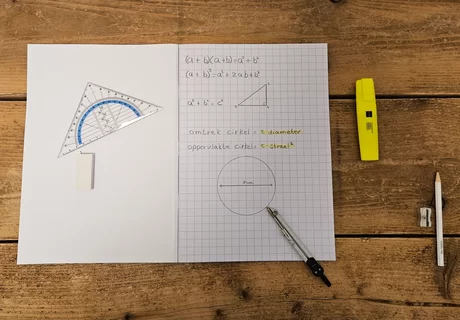 (a + b)(a+b)=a²+b²
(a + b)²=a²+2ab+b²
a²+b²=c²
omtrek cirkel = π diameter
oppervlakte cirkel= π straal²